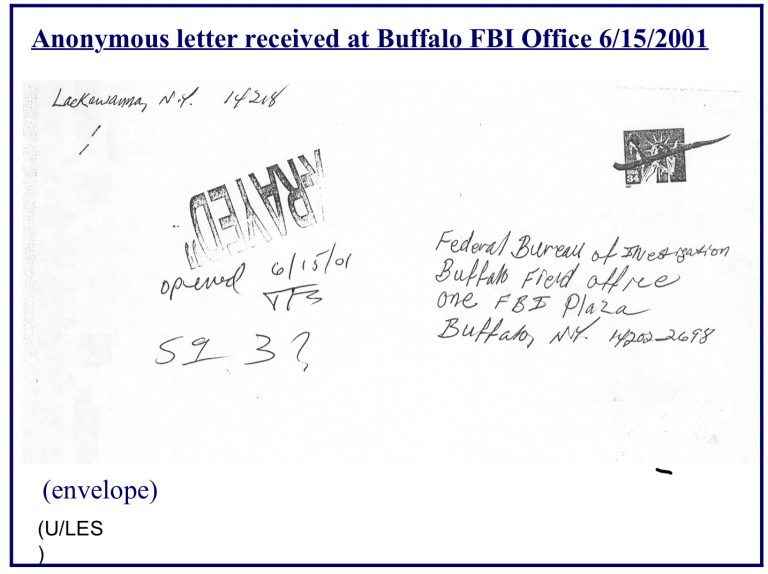 Anonymous letter received at Buffalo FBI Office 6/15/2001
Lackawanna, N.Y. 14218
USA
34
X-RAYED
opened 6/15/01
Federal Bureau of INvestigation
Buffalo Field office
one FBI Plaza
Buffalo, N.Y. 14202-2698
(envelope)
(U/LES
)